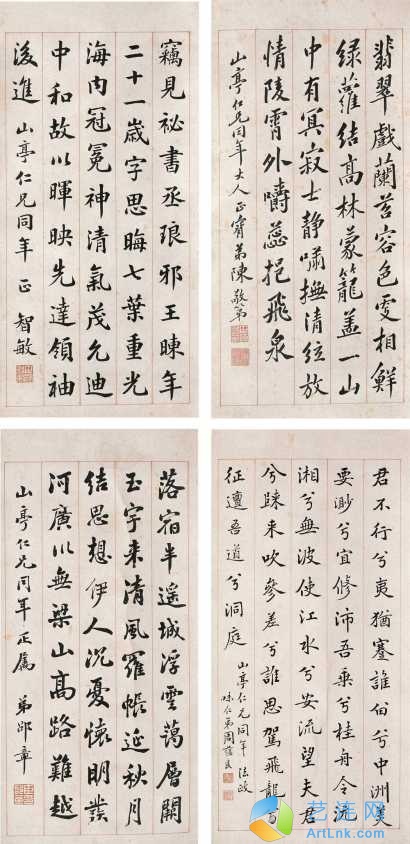 翡翠戲蘭苕容色更相鮮
綠蘿結高林蒙籠蓋一山
中有冥寂士静嘯撫清弦放
情陵霄外嚼蕊挹飛泉
山亭仁兄同年大人正 弟陳敬第
竊見祕書丞琅邪王暕年
二十一歲字思晦七葉重光
海內冠冕神清氣茂允迪
中和故以暉映先達領袖
後進 山亭仁兄同年正 智敏
君不行兮夷猶蹇誰留兮中洲美
要渺兮宜修沛吾乘兮桂舟令沅
湘兮無波使江水兮安流望夫君
兮歸來吹參差兮誰思駕飛龍兮
征邅吾道兮洞庭 山亭仁兄同年法政
味仁弟周良
落宿半遥城浮雲藹層闕
玉宇来清風羅帳延秋月
結思想伊人沉憂懷明發
河廣川無梁山高路難越
山亭仁兄同年正屬 弟邵章
艺连网
ArtLnk.com